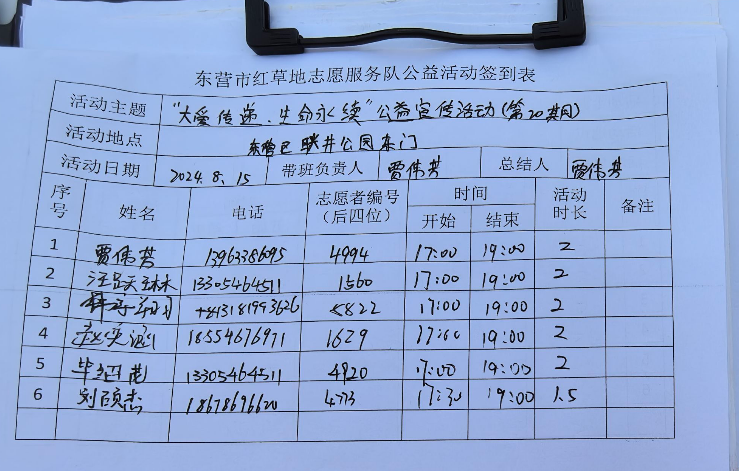 东营市红草地志愿服务队公益活动签到表
活动主题 "大爱传递、生命永续"公益宣传活动(第20期)
活动地点 东营区 公园东门
活动日期 2024.8.15 带班负责人 贾伟芳 总结人 贾伟芳
序号 姓名 电话 志愿者编号(后四位) 时间 开始 结束 活动时长 备注
1 贾伟芳 13963386095 4994 17:00 19:00 2
2 13305464511 1560 17:00 19:00 2
3 5822 17:00 19:00 2
4 赵奕涵 18554676971 1629 17:00 19:00 2
5 毕 13305464511 4920 17:00 19:00 2
6 刘硕杰 18678696620 4773 17:30 19:00 1.5